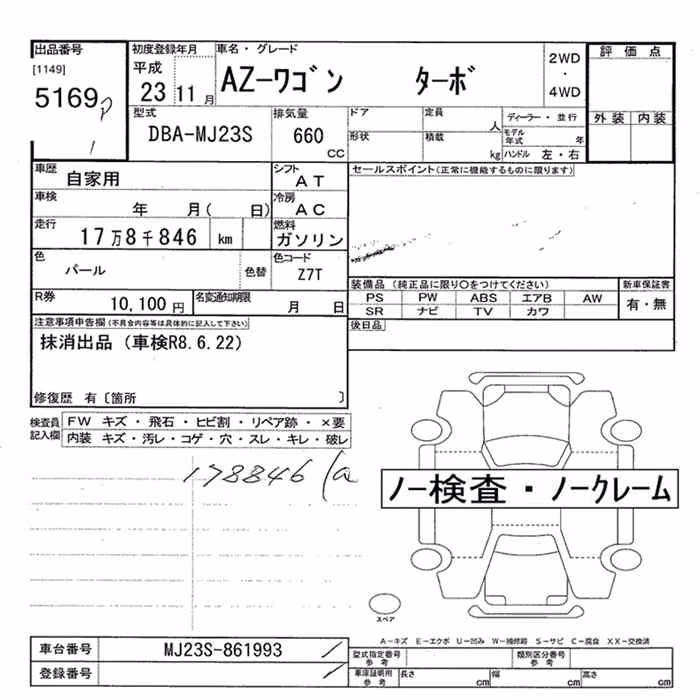 出品番号
[1149]
5169
初度登録年月
平成
23 11 月
車名・グレード
AZーワゴン ターボ
2WD
・
4WD
評価点
外装 内装
型式
DBA-MJ23S
排気量
660
CC
ドア
定員
人
ディーラー・並行
形状
積載
kg
モデル年式 年
ハンドル 左・右
車歴
自家用
シフト
AT
セールスポイント(正常に機能するものに限ります)
車検
年 月( 日)
冷房
AC
走行
17万8千846 km
燃料
ガソリン
色
パール
色替
色コード
Z7T
装備品 (純正品に限り○をつけてください)
PS PW ABS エアB AW
SR ナビ TV カワ
新車保証書
有・無
R券
10,100円
名変通知期限
月 日
後日品
注意事項申告欄(不具合内容等は具体的に記入して下さい)
抹消出品(車検R8.6.22)
修復歴 有〔箇所 〕
検査員記入欄
FW キズ・飛石・ヒビ割・リペア跡・×要
内装 キズ・汚レ・コゲ・穴・スレ・キレ・破レ
178846
ノー検査・ノークレーム
スペア
A-キズ E-エクボ U-凹み W-補修跡 S-サビ C-腐食 XX-交換済
車台番号
MJ23S-861993
登録番号
型式指定番号
参考
類別区分番号
参考
車庫証明用
参考
長さ cm 幅 cm 高さ cm